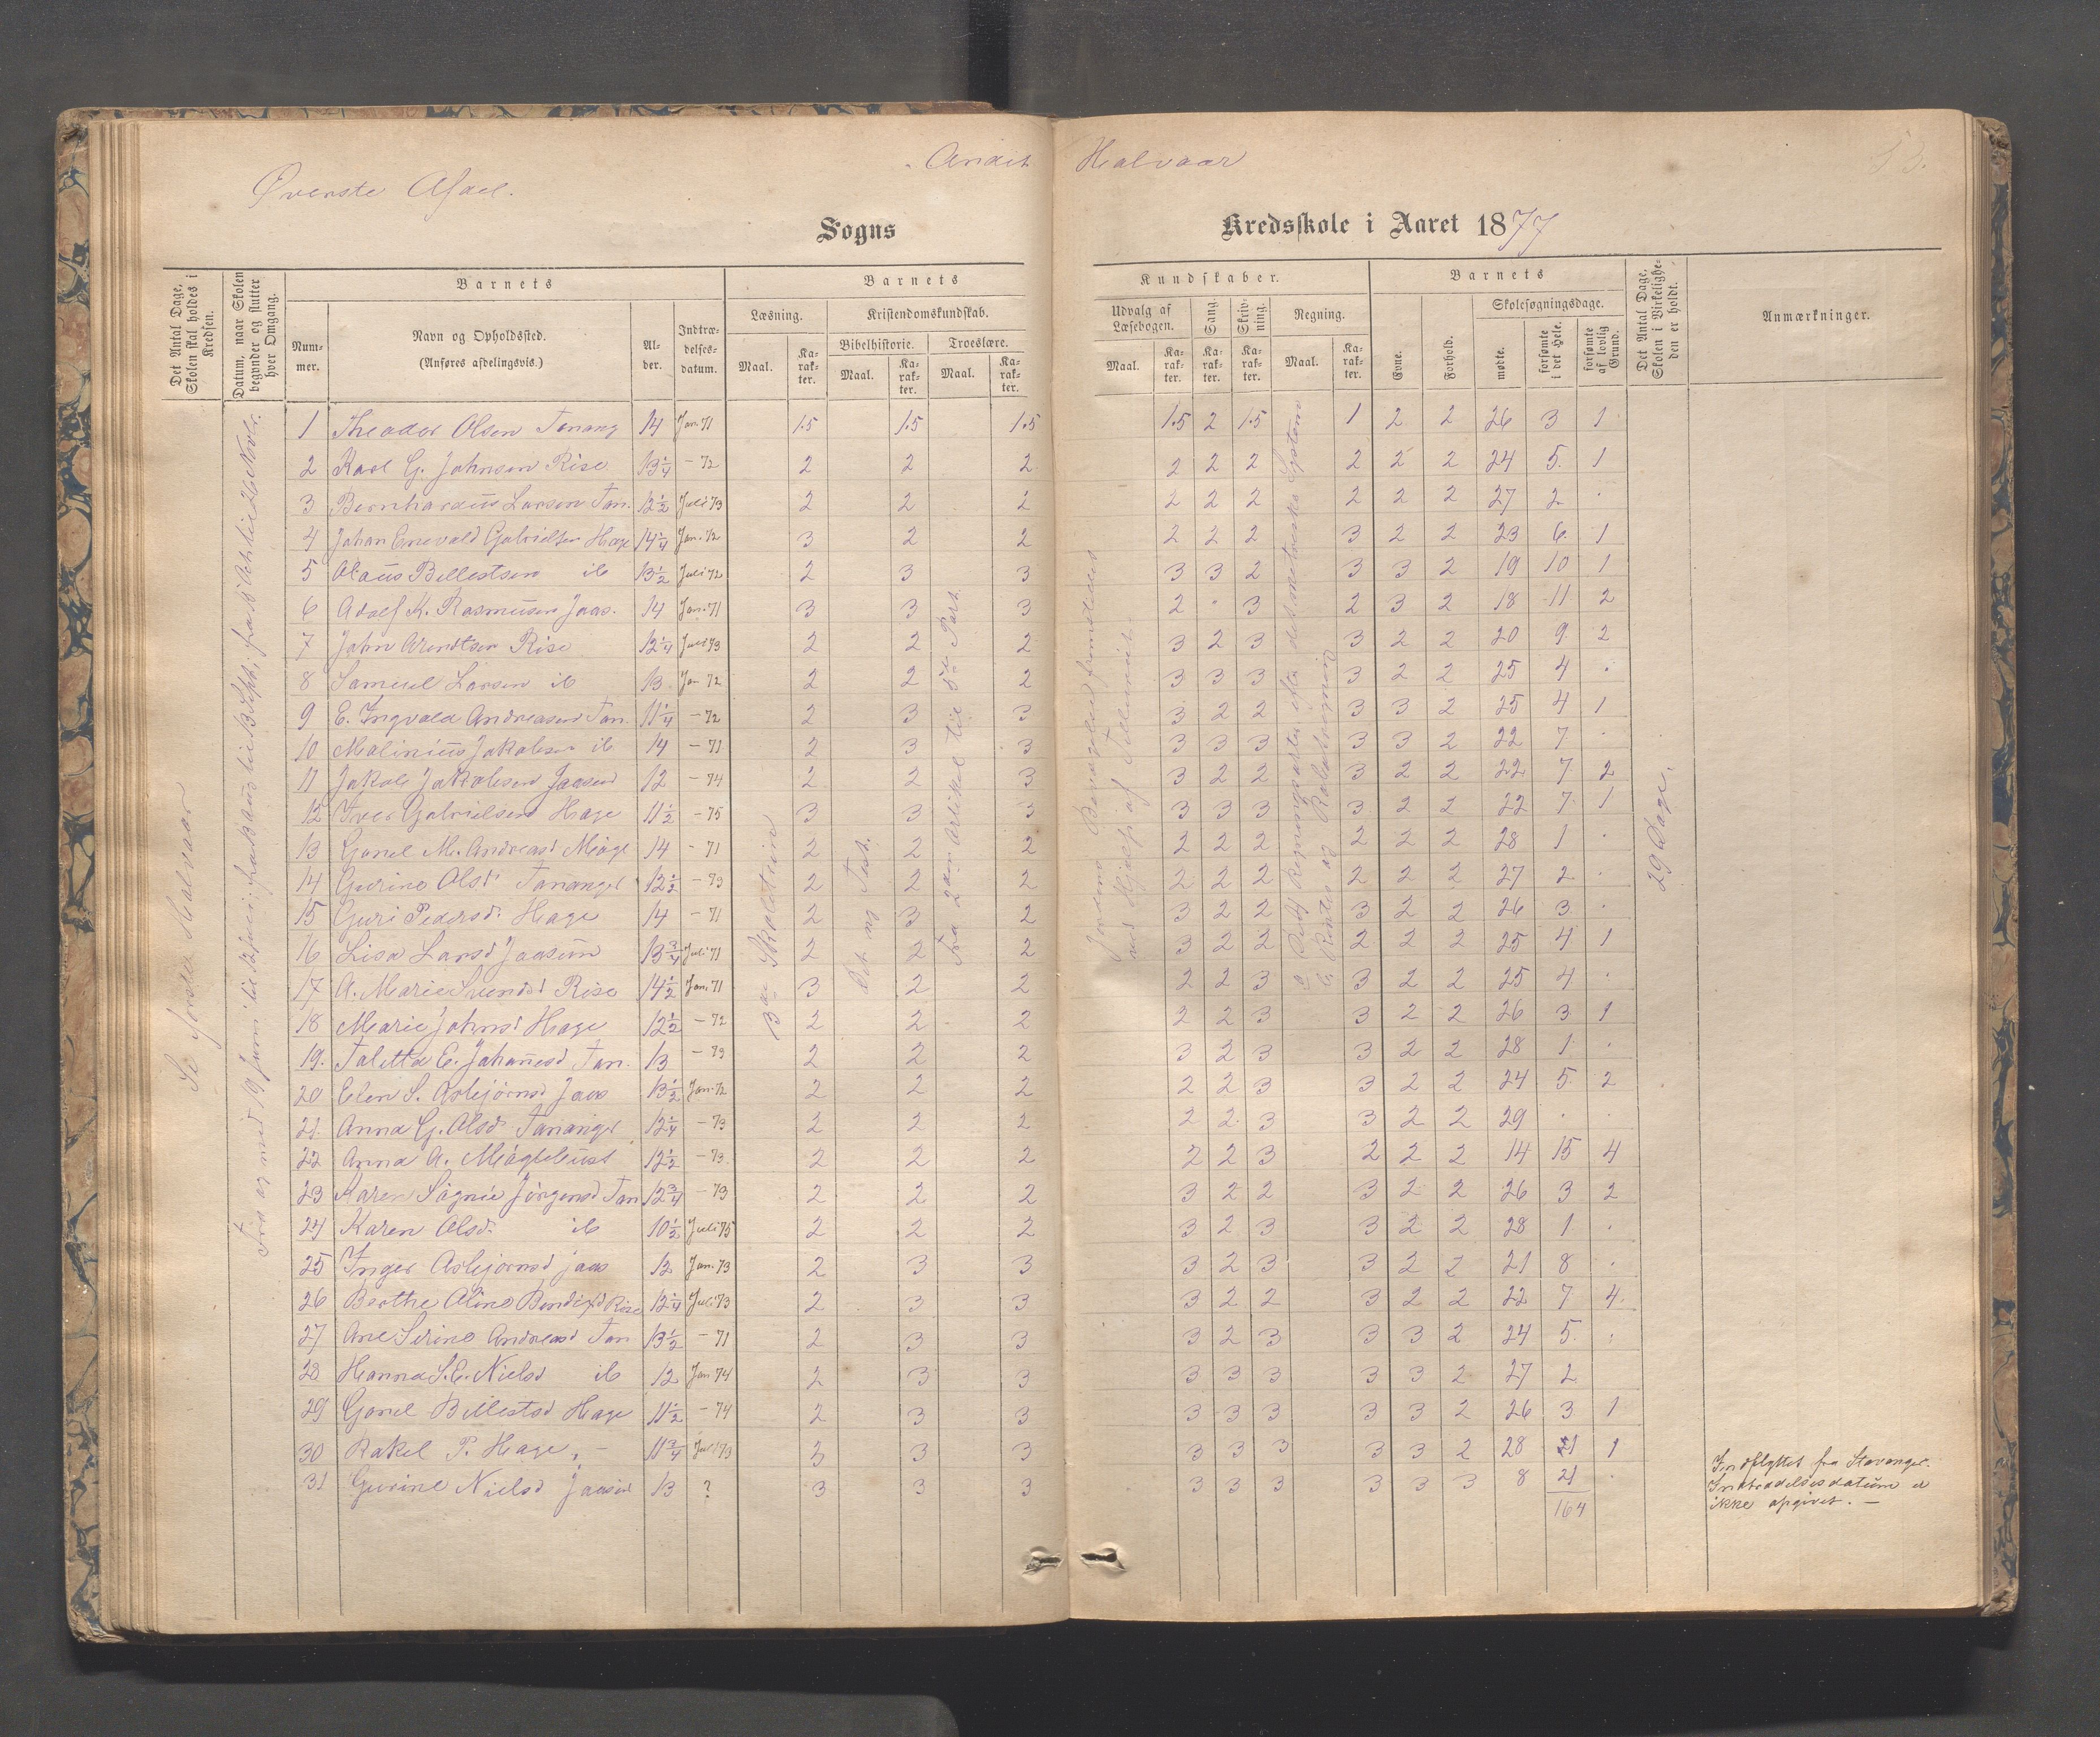 Andet Halvaar
Øverste Afdel.
Sogns Kredsskole i Aaret 1877
Det Antal Dage, Skolen skal holdes i Kredsen.
Datum, naar Skolen begynder og slutter hver Omgang.
Barnets
Nummer.
Navn og Opholdssted.
(Anføres afdelingsvis.)
Alder.
Indtrædelsesdatum.
Barnets Kundskaber.
Læsning.
Kristendomskundskab.
Bibelhistorie.
Troeslære.
Maal. Karakter. Maal. Karakter. Maal. Karakter.
Udvalg af Læsebogen.
Sang.
Skrivning.
Regning.
Maal. Karakter. Karakter. Karakter. Maal. Karakter.
Barnets
Evne.
Forhold.
Skolesøgningsdage.
mødte.
forsømte i det Hele.
forsømte af lovlig Grund.
Det Antal Dage, Skolen i Virkeligheden er holdt.
Anmærkninger.
Se første Halvaar
3die Skoletrin
Det ny Test.
Fra 2den Artikel til 5te Part.
29 Dage.
1 Theodor Olsen Tanang 14 Jan. 71 1.5 1.5 1.5 1.5 2 1.5 1 2 2 26 3 1
2 Karl G. Johnsen Rise 13 1/4 - 72 2 2 2 2 2 2 2 2 2 24 5 1
3 Bernhardus Larsen Tan. 12 1/2 Juli 73 2 2 2 2 2 2 2 2 2 27 2 .
4 Johan Enevald Gabrielsen Hage 14 1/4 Jan. 72 3 2 2 2 2 2 3 2 2 23 6 1
5 Olaus Bellestsen ib 13 1/2 Juli 72 2 3 3 3 3 2 3 3 2 19 10 1
6 Adolf K. Rasmusen Jaas. 14 Jan. 71 3 3 3 2 . 3 2 3 2 18 11 2
7 John Arentsen Rise 12 1/4 Juli 73 2 2 2 3 2 3 3 2 2 20 9 2
8 Samuel Larsen ib 13 Jan 72 2 2 2 3 3 3 3 2 2 25 4 .
9 E. Ingvald Andreasen Tan. 11 1/4 - 72 2 3 3 3 2 2 3 3 2 25 4 1
10 Malinius Jakobsen ib 14 - 71 2 3 3 3 3 3 3 3 2 22 7 .
11 Jakob Jakobsen Jaasund 12 - 74 2 2 3 3 2 2 3 2 2 22 7 2
12 Iver Gabrielsen Hage 11 1/2 - 75 3 3 3 3 3 3 3 2 2 22 7 1
13 Gonel M. Andreasd Meage 14 - 71 2 2 2 2 2 2 2 2 2 28 1 .
14 Gurine Olsd. Tananger 12 1/2 - 73 2 2 2 2 2 2 2 2 2 27 2 .
15 Guri Pedersd. Hage 14 - 71 2 3 2 3 2 2 3 2 2 26 3 .
16 Lisa Larsd Jaasun 13 3/4 Juli 71 2 2 2 3 2 2 2 2 2 25 4 1
17 A. Marie Svendsd Rise 14 1/2 Jan. 71 3 2 2 2 2 3 3 2 2 25 4 .
18 Marie Johnsd Hage 12 1/2 - 72 2 2 2 2 2 3 3 2 2 26 3 1
19. Taletta E. Johanesd Tan. 13 - 73 2 2 2 3 2 3 3 2 2 28 1 .
20 Elen S. Asbjörnsd Jaas 13 1/2 Jan. 72 2 2 2 2 2 3 3 2 2 24 5 2
21. Anna G. Olsd. Tananger 12 1/4 - 73 2 2 2 2 2 3 3 2 2 29 . .
22 Anna A. Meagtebust 12 1/2 - 73 2 2 2 2 2 3 2 2 2 14 15 4
23 Karen Sagnie Jörgensd Tan 12 3/4 - 73 2 2 2 3 2 2 3 2 2 26 3 2
24 Karen Olsd. ib 10 1/2 Juli 75 2 2 2 3 2 3 3 2 2 28 1 .
25 Inger Asbjørnsd Jaas 12 Jan. 73 2 3 3 3 2 3 3 2 2 21 8 .
26 Berthe Oline Bendixd Rise 12 1/4 Juli 73 2 3 3 3 2 2 3 2 2 22 7 4
27 Ane Serine Andreasd Tan 13 1/2 - 71 2 3 3 3 2 3 3 3 2 24 5 .
28 Hanna S. E. Nielsd ib 12 Jan 74 2 3 3 3 3 3 3 3 2 27 2
29 Gonel Bellestsd Hage 11 1/2 - 74 2 3 3 3 3 3 3 3 2 26 3 1
30 Rakel P. Hage, - 11 3/4 Juli 73 3 3 3 3 3 3 3 3 2 28 1 1
31 Gurine Nielsd Jaasund 13 ? 3 3 3 3 3 3 3 3 3 8 21 .
164
Indflyttet fra Stavanger. Indtrædelsesdatum er ikke opgivet. -